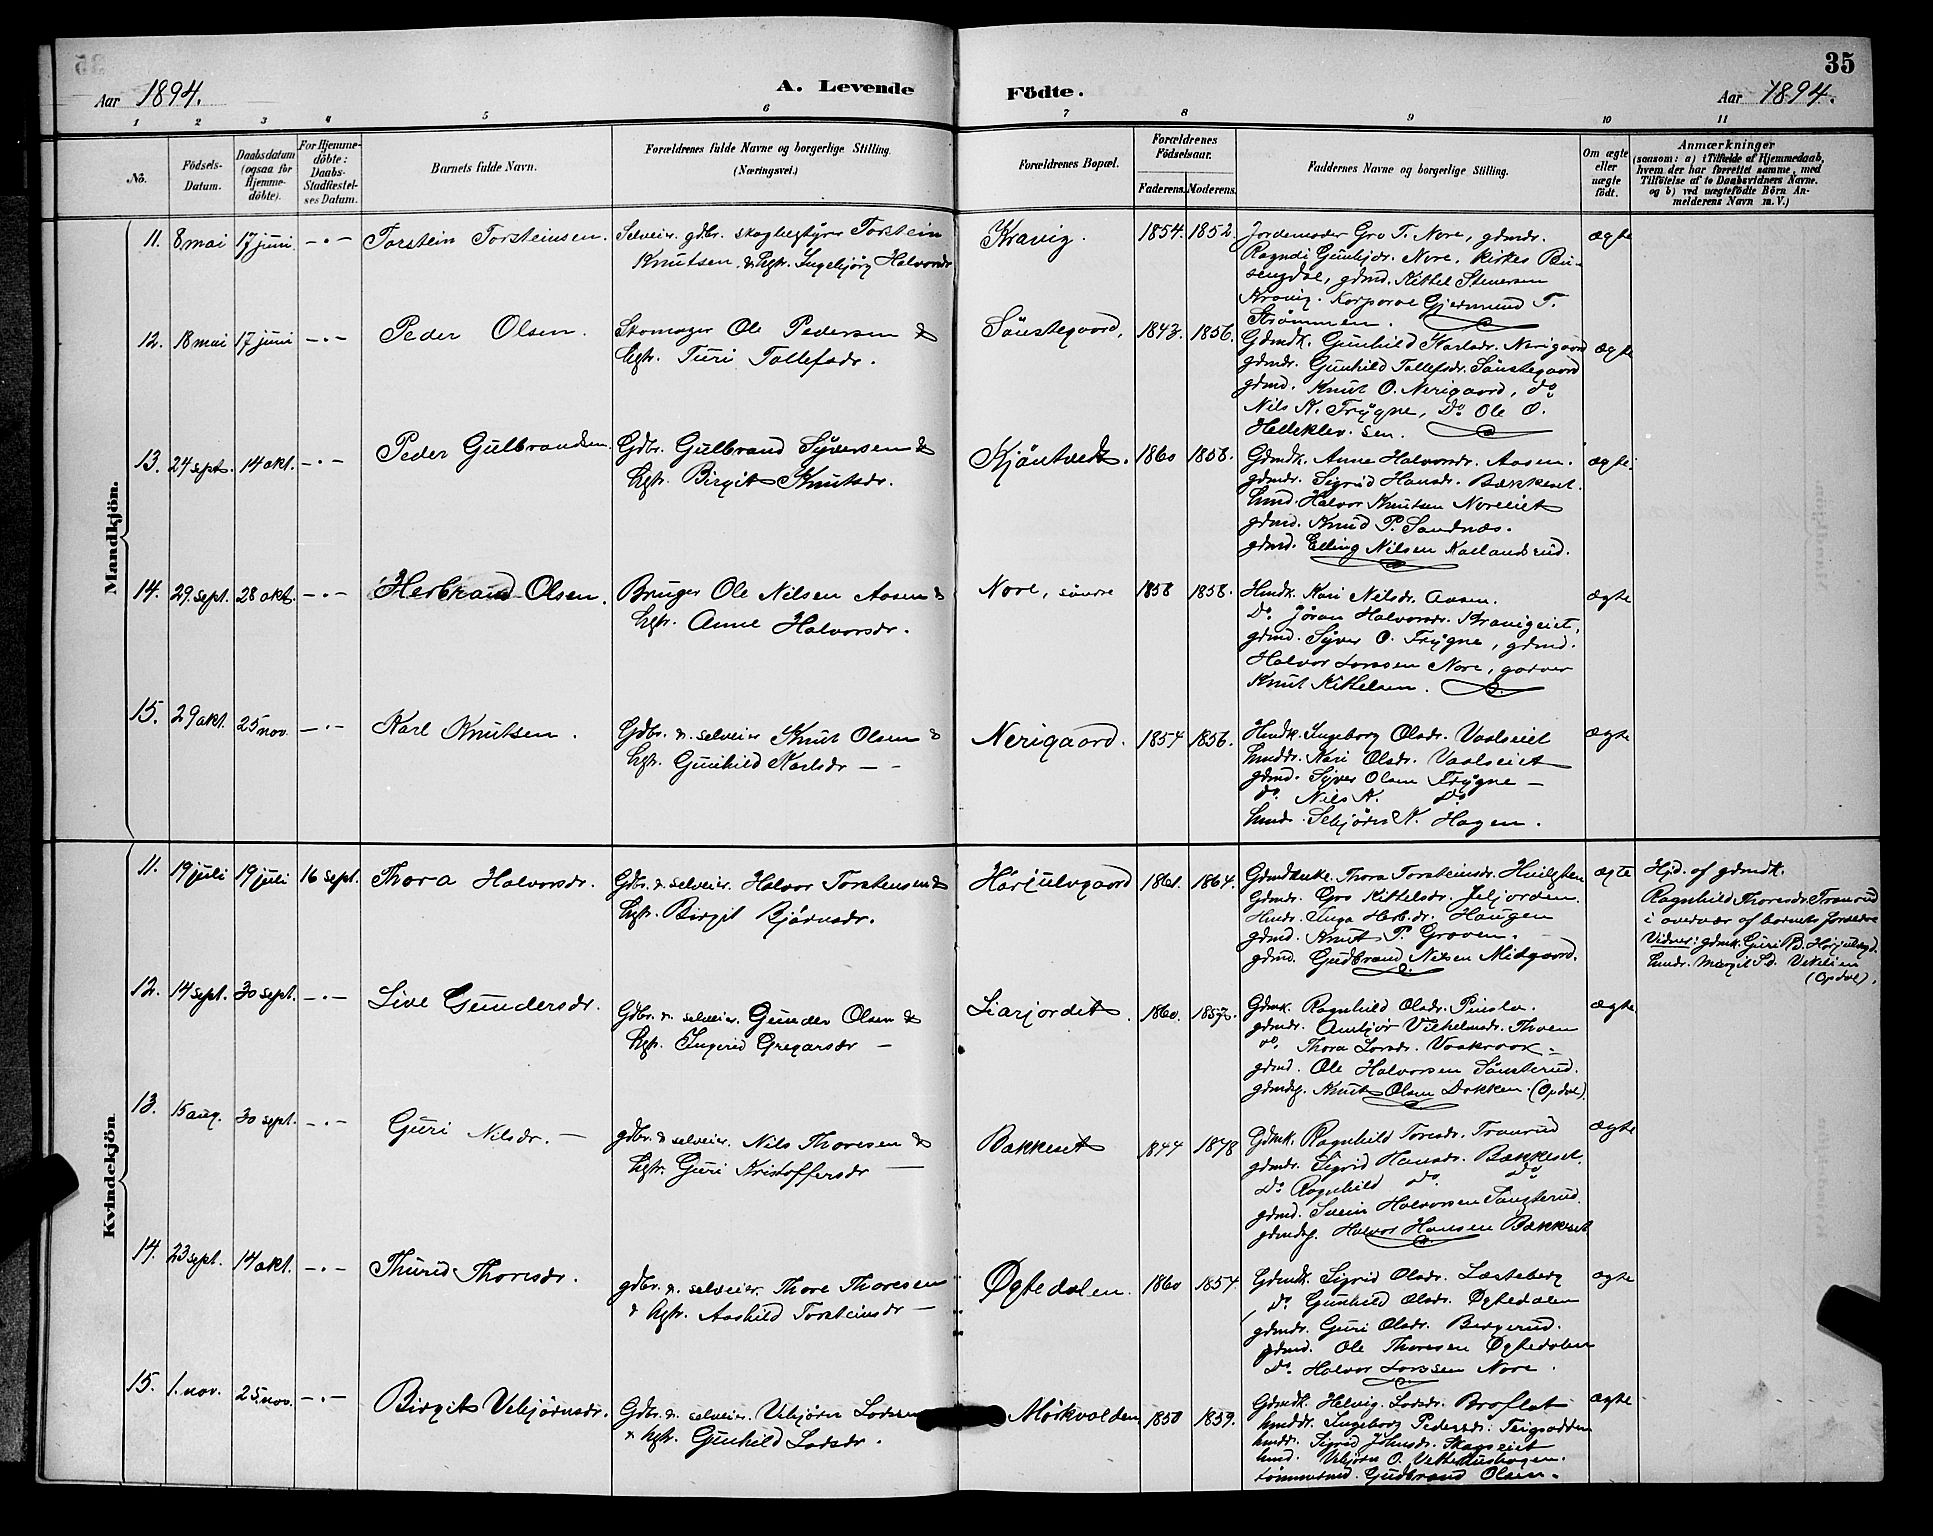 35
Aar 1894.
A. Levende Födte.
Aar 1894.
1 2 3 4 5 6 7 8 9 10 11
No.
Födsels-Datum.
Daabsdatum (ogsaa for Hjemme-döbte).
For Hjemme-döbte: Daabs-Stadfæstel-ses Datum.
Barnets fulde Navn.
Forældrenes fulde Navne og borgerlige Stilling.
(Næringsvei.)
Forældrenes Bopæl.
Forældrenes Födselsaar.
Faderens. Moderens.
Faddernes Navne og borgerlige Stilling.
Om ægte eller uægte födt.
Anmærkninger
(saasom: a) i Tilfælde af Hjemmedaab,
hvem der har forrettet samme, med
Tilföielse af to Daabsvidners Navne.
og b) ved uægtefödte Börn An-
melderens Navn m. V.)
Mandkjön.
11. 8 mai 17 juni —·— Torstein Torsteinsen. Selveier gdbr. skogbestyrer Torstein
Knutsen & hstr. Ingebjørg Halvorsdr
Kravig. 1854. 1852. Jordemoder Gro T. Nore, gdmdr.
Ragndi Gunbjdr. Nore, kirkes
gdmd. Kittel Stenersen
Kravig. Korporal Gjermund T.
Strømmen.
ægte
12. 18 mai 17 juni —·— Peder Olsen. Skomager Ole Pedersen &
hstr. Turi Tollefsdr.
Sönstegaard, 1843. 1856. Gdmdk. Gunhild Karlsdr. Nerigaard
gdmdr. Gunhild Tollefsdr. Sönstegaard
gdmd. Knut O. Nerigaard, do
Nils K. Frygne, Do Ole O.
Helleklev. sen.
ægte
13. 24 sept. 14 okt. —·— Peder Gulbrandsen Gdbr. Gulbrand Syversen &
hstr. Birgit Knutsdr.
Kjöntvedt. 1860 1858. Gdmdk. Anne Halvorsdr. Aasen.
gdmdr. Sigrid Hansdr. Bækkeset.
hmd. Halvor Knutsen Noreeiet
gdmd. Knud P. Sandnæs.
gdmd. Elling Nilsen Kallandsrud.
ægte
14. 29. sept. 28 okt. —·— Herbrand Olsen. Bruger Ole Nilsen Aasen &
hstr. Anne Halvorsdr.
Nore, søndre 1858 1858. Hmdk. Kari Nilsdr. Aasen.
Do Jøran Halvorsdr. Kravigeiet,
gdmd. Syver O. Frygne, gdmd.
Halvor Larssen Nore, garver
Knut Kittelsen.
ægte
15. 29 okt. 25 nov. —·— Karl Knutsen. Gdbr. & selveier Knut Olsen &
hstr. Gunhild Karlsdr — -
Nerigaard. 1854 1856. Hmdk. Ingeborg Olsdr. Vaalseiet
hmddr. Kari Olsdr. Vaalseiet
gdmd. Syver Olsen Frygne —
do Nils K. Do
hmds. Sebjörn N. Hagen.
ægte
Kvindekjön
11. 19 juli 19 juli 16 sept. Thora Halvorsdr. Gdbr. & selveier. Halvor Torstensen &
hstr. Birgit Bjørnsdr.
Hörjulvgaard 1861. 1864. Gdmdenke. Thora Torsteinsdr.
Gdmdr. Gro Kittelsdr.
Hmdr. Inga Herb.dr. Haugen
gdmd. Knut P. Groven.
gdmd. Gudbrand Nilsen Midgaard.
ægte
Hjd. af gdmdk.
Ragnhild Thoresdr. Tranrud
i overvær af barnets forældre
Vidner: gdmk. Guri B.
hmdr. Margit
(Opdal).
12. 14 sept. 30 sept. —·— Live Gundersdr. Gdbr. & selveier. Gunder Olsen &
hstr. Ingerid Gregarsdr —
Liarjordet. 1860. 1857. Gdmk. Ragnhild Olsdr.
gdmdr. Vilhelmsdr. Thoen
do Thora Larsdr.
gdmd. Ole Halvorsen Sönsterud.
gdmdsg. Knut Olsen Dokken. (Opdal).
ægte
13. 15 aug. 30 sept. —·— Guri Nilsdr. — gdbr. & selveier. Nils Thoresen &
hstr. Guri Kristoffersdr —
Bakkeset 1844 1848 Gdmk. Ragnhild Toresdr. Tranrud
gdmdr. Sigrid Hansdr. Bækkeset.
Do Ragnhild do. do
gdmd. Svein Halvorsen
gdmdsg. Halvor Hansen Bækkeset
ægte
14. 23 sept. 14 okt. —·— Thurid Thoresdr. gdbr. & selveier. Thore Thoresen
& hstr. Aashild Torsteinsdr —
Øgtedalen. 1860 1854. Gdmdk. Sigrid Olsdr.
do Gunhild Olsdr. Øgtedalen
gdmdr. Guri Olsdr. Bergerud.
gdmd. Ole Thoresen Øgtedalen
Do Halvor Larssen Nore.
ægte
15. 1. nov. 25. nov. —·— Birgit Vebjørnsdr. Gdbr. & selveier. Vebjørn Larssen
& hstr. Gunhild Ladsdr.
Mørkvolden 1850 1859. Gdmdk. Helvig Ladsdr. Broflat
hmddr. Ingeborg Pedersdr.
hmddr. Sigrid Johnsdr. Skogseiet
hmd. Vebjörn O.
tömmermd. Gudbrand Olsen.
ægte